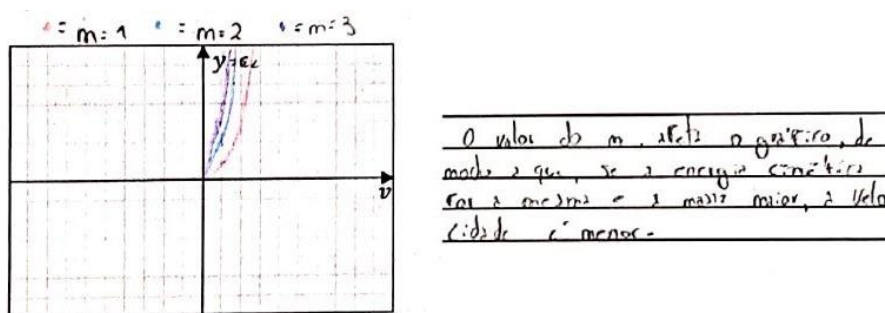 = m=1 = m=2 = m=3
y=Ec
v
O valor do m afeta o gráfico, de
modo a que, se a energia cinética
for a mesma e a massa maior, a velo
cidade é menor.